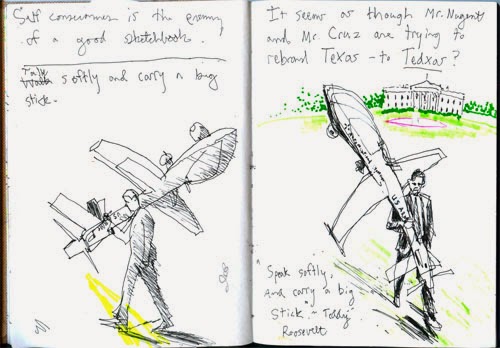 Self consciousness is the enemy
of a good sketchbook.
Talk
Walk softly and carry a big
stick.
It seems as though Mr. Nugent
and Mr. Cruz are trying to
rebrand Texas - to Tedxas?
"Speak softly,
and carry a big
stick." - "Teddy"
Roosevelt